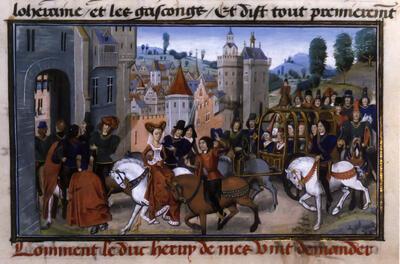 loheraine / et les gascongz / Et dist tout premierem̄t
Comment le duc heruy de mes vint demander